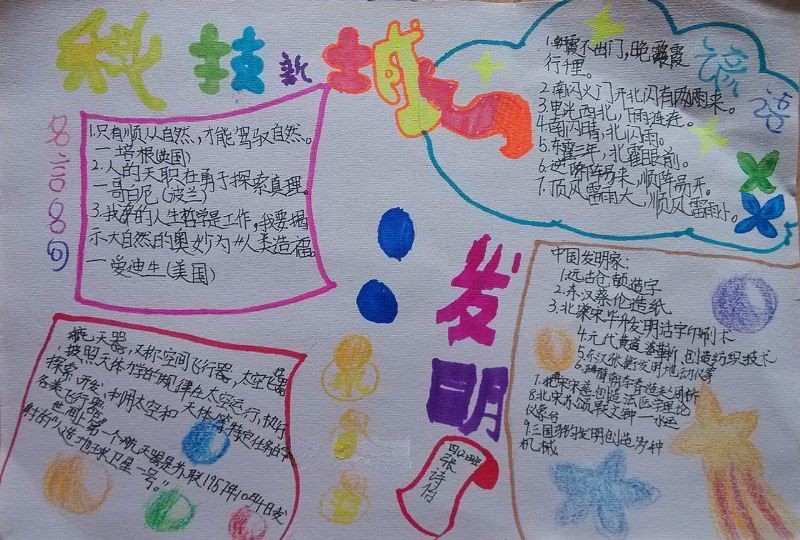 科技新城
名言名句
1.只有顺从自然,才能驾驭自然。
—培根(英国)
2.人的天职在勇于探索真理。
—哥白尼(波兰)
3.我的人生哲学是工作,我要揭
示大自然的奥妙为人类造福。
—爱迪生(美国)
谚语
1.朝霞不出门,晚霞
行千里。
2.南闪火门开北闪有雨来。
4.南闪晴,北闪雨。
7.顶风雷雨大,顺风雷雨小。
发明
中国发明家:
1.远古仓颉造字
2.东汉蔡伦造纸
3.北宋毕升发明活字印刷术
4.元代黄道婆革新,创造纺织技术
5.东汉张衡发明地动仪等
7.宋慈创造法医学理论
8.北宋苏颂
仪象台
9.三国马钧发明创造多种
机械
航天器,又称空间飞行器,太空飞行器
按照天体力学的规律在太空运行,执行
探索,开发,利用太空和天体等特定任务的
各类飞行器。
世间上第一个航天器是苏联1957年10月4日发
射的"人造地球卫星一号。"